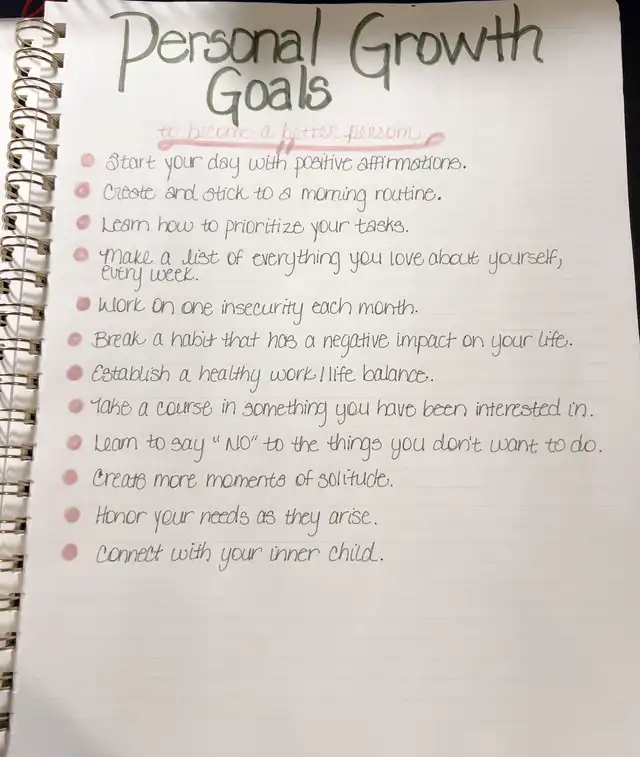 Personal Growth
Goals
to become a better person
Start your day with positive affirmations.
Create and stick to a morning routine.
Learn how to prioritize your tasks.
Make a list of everything you love about yourself,
every week.
Work on one insecurity each month.
Break a habit that has a negative impact on your life.
Establish a healthy work/life balance.
Take a course in something you have been interested in.
Learn to say "NO" to the things you don't want to do.
Create more moments of solitude.
Honor your needs as they arise.
Connect with your inner child.